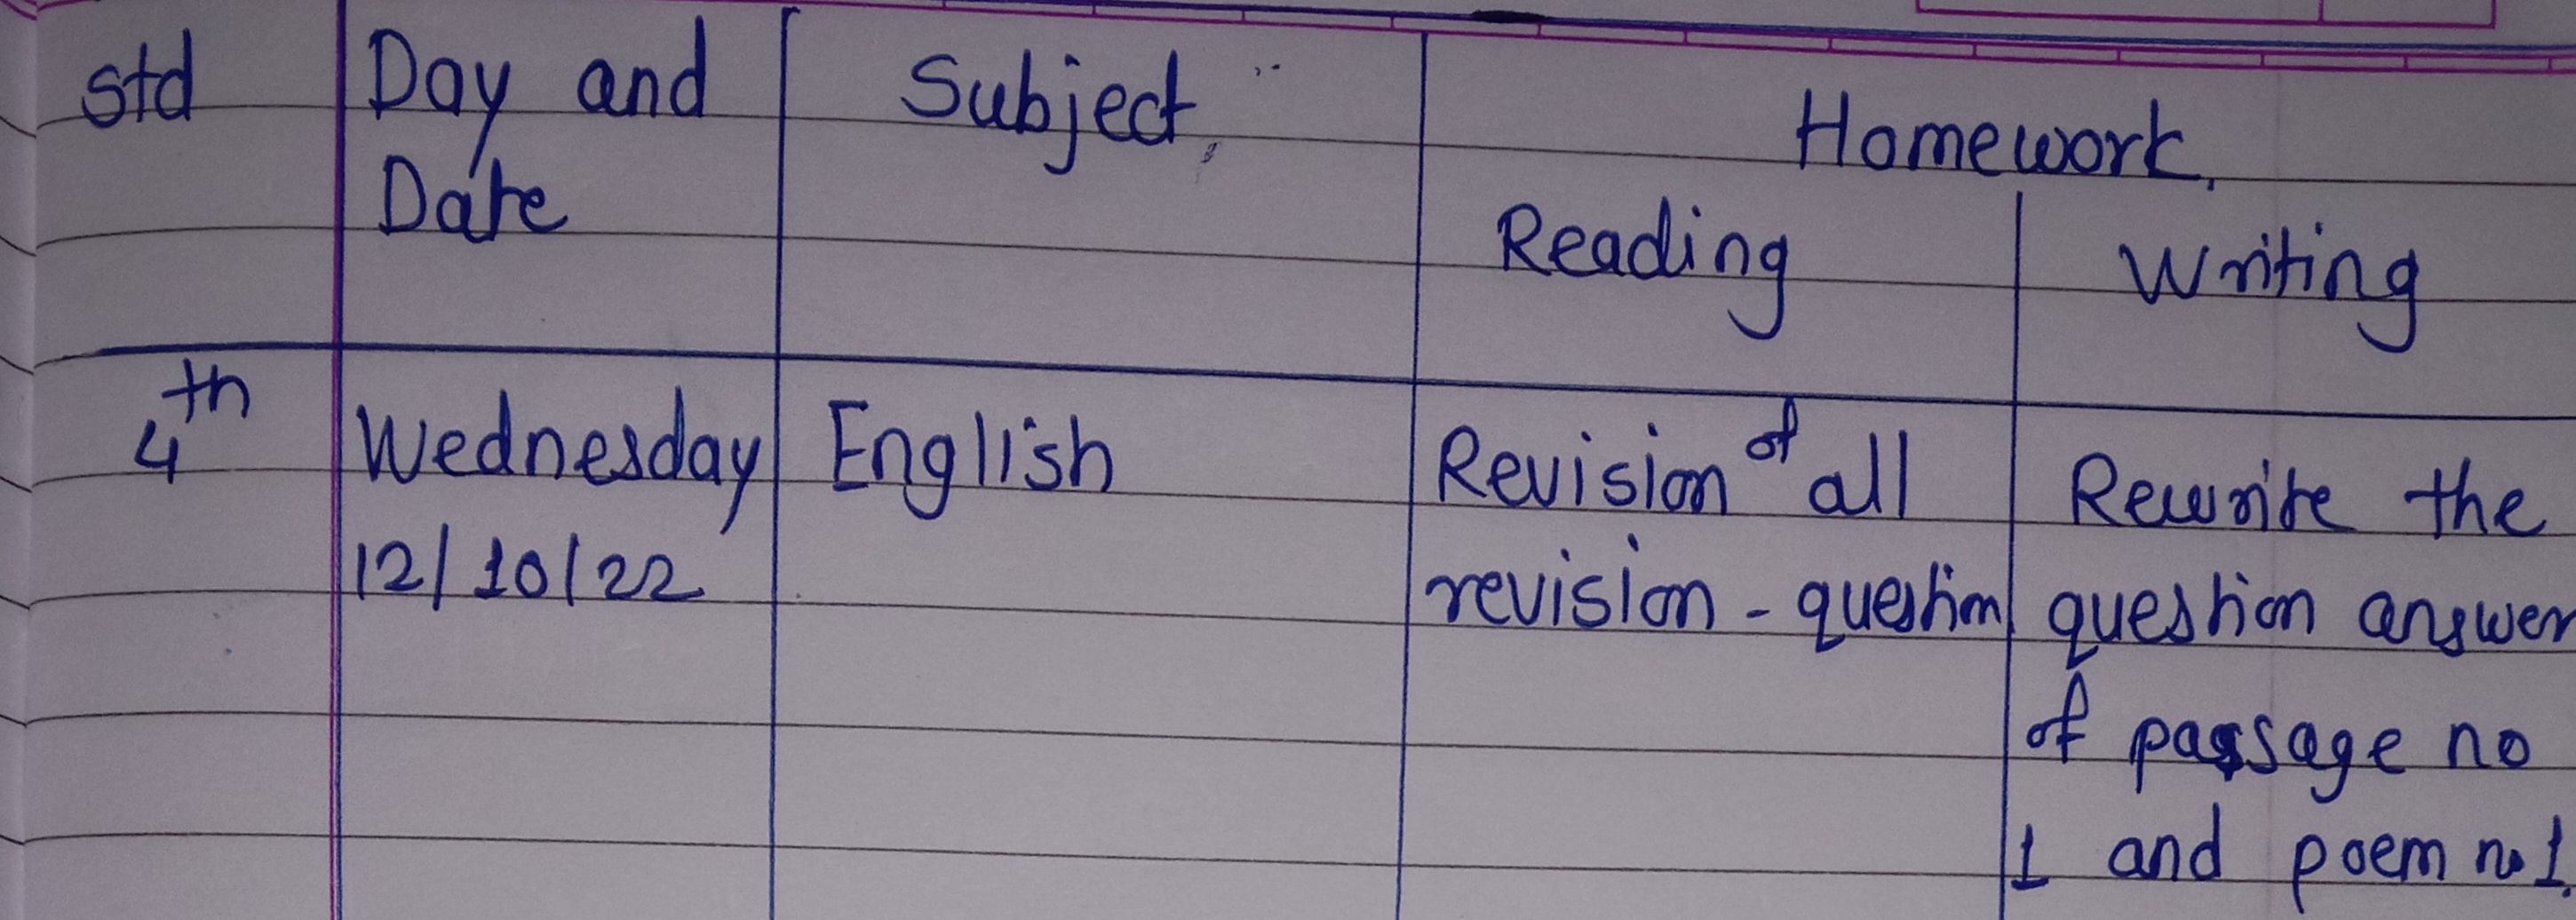 std Day and Subject Homework.
Date Reading Writing
4th Wednesday English Revision of all Rewrite the
12/10/22 revision - question question answer
of passage no
1 and poem no 1.